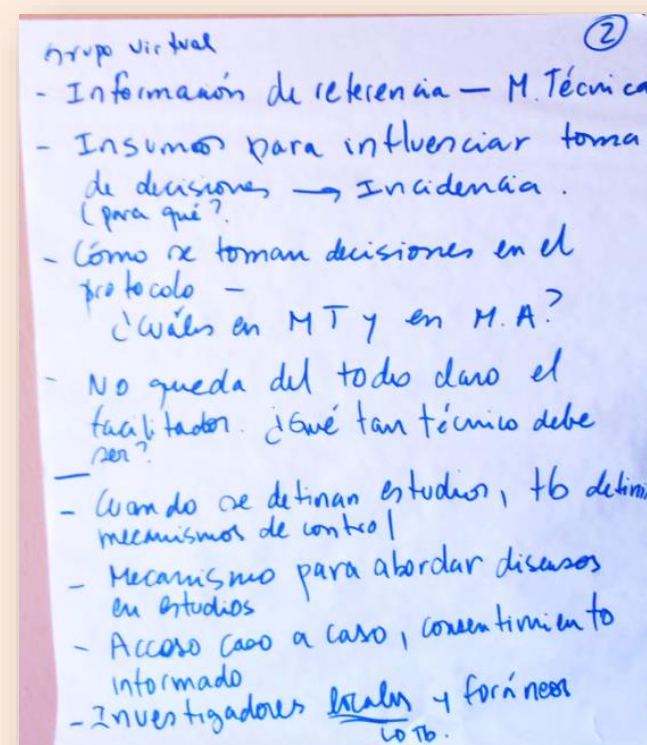 Grupo virtual
②
- Información de referencia — M. Técnica
- Insumos para influenciar toma
de decisiones → Incidencia.
(para qué?
- Cómo se toman decisiones en el
protocolo –
¿Cuáles en MT y en M.A?
- No queda del todo claro el
facilitador. ¿Qué tan técnico debe
ser?
- Cuando se definan estudios, tb defini
mecanismos de control
- Mecanismo para abordar disensos
en estudios
- Acceso caso a caso, consentimiento
informado
- Investigadores locales y foráneos